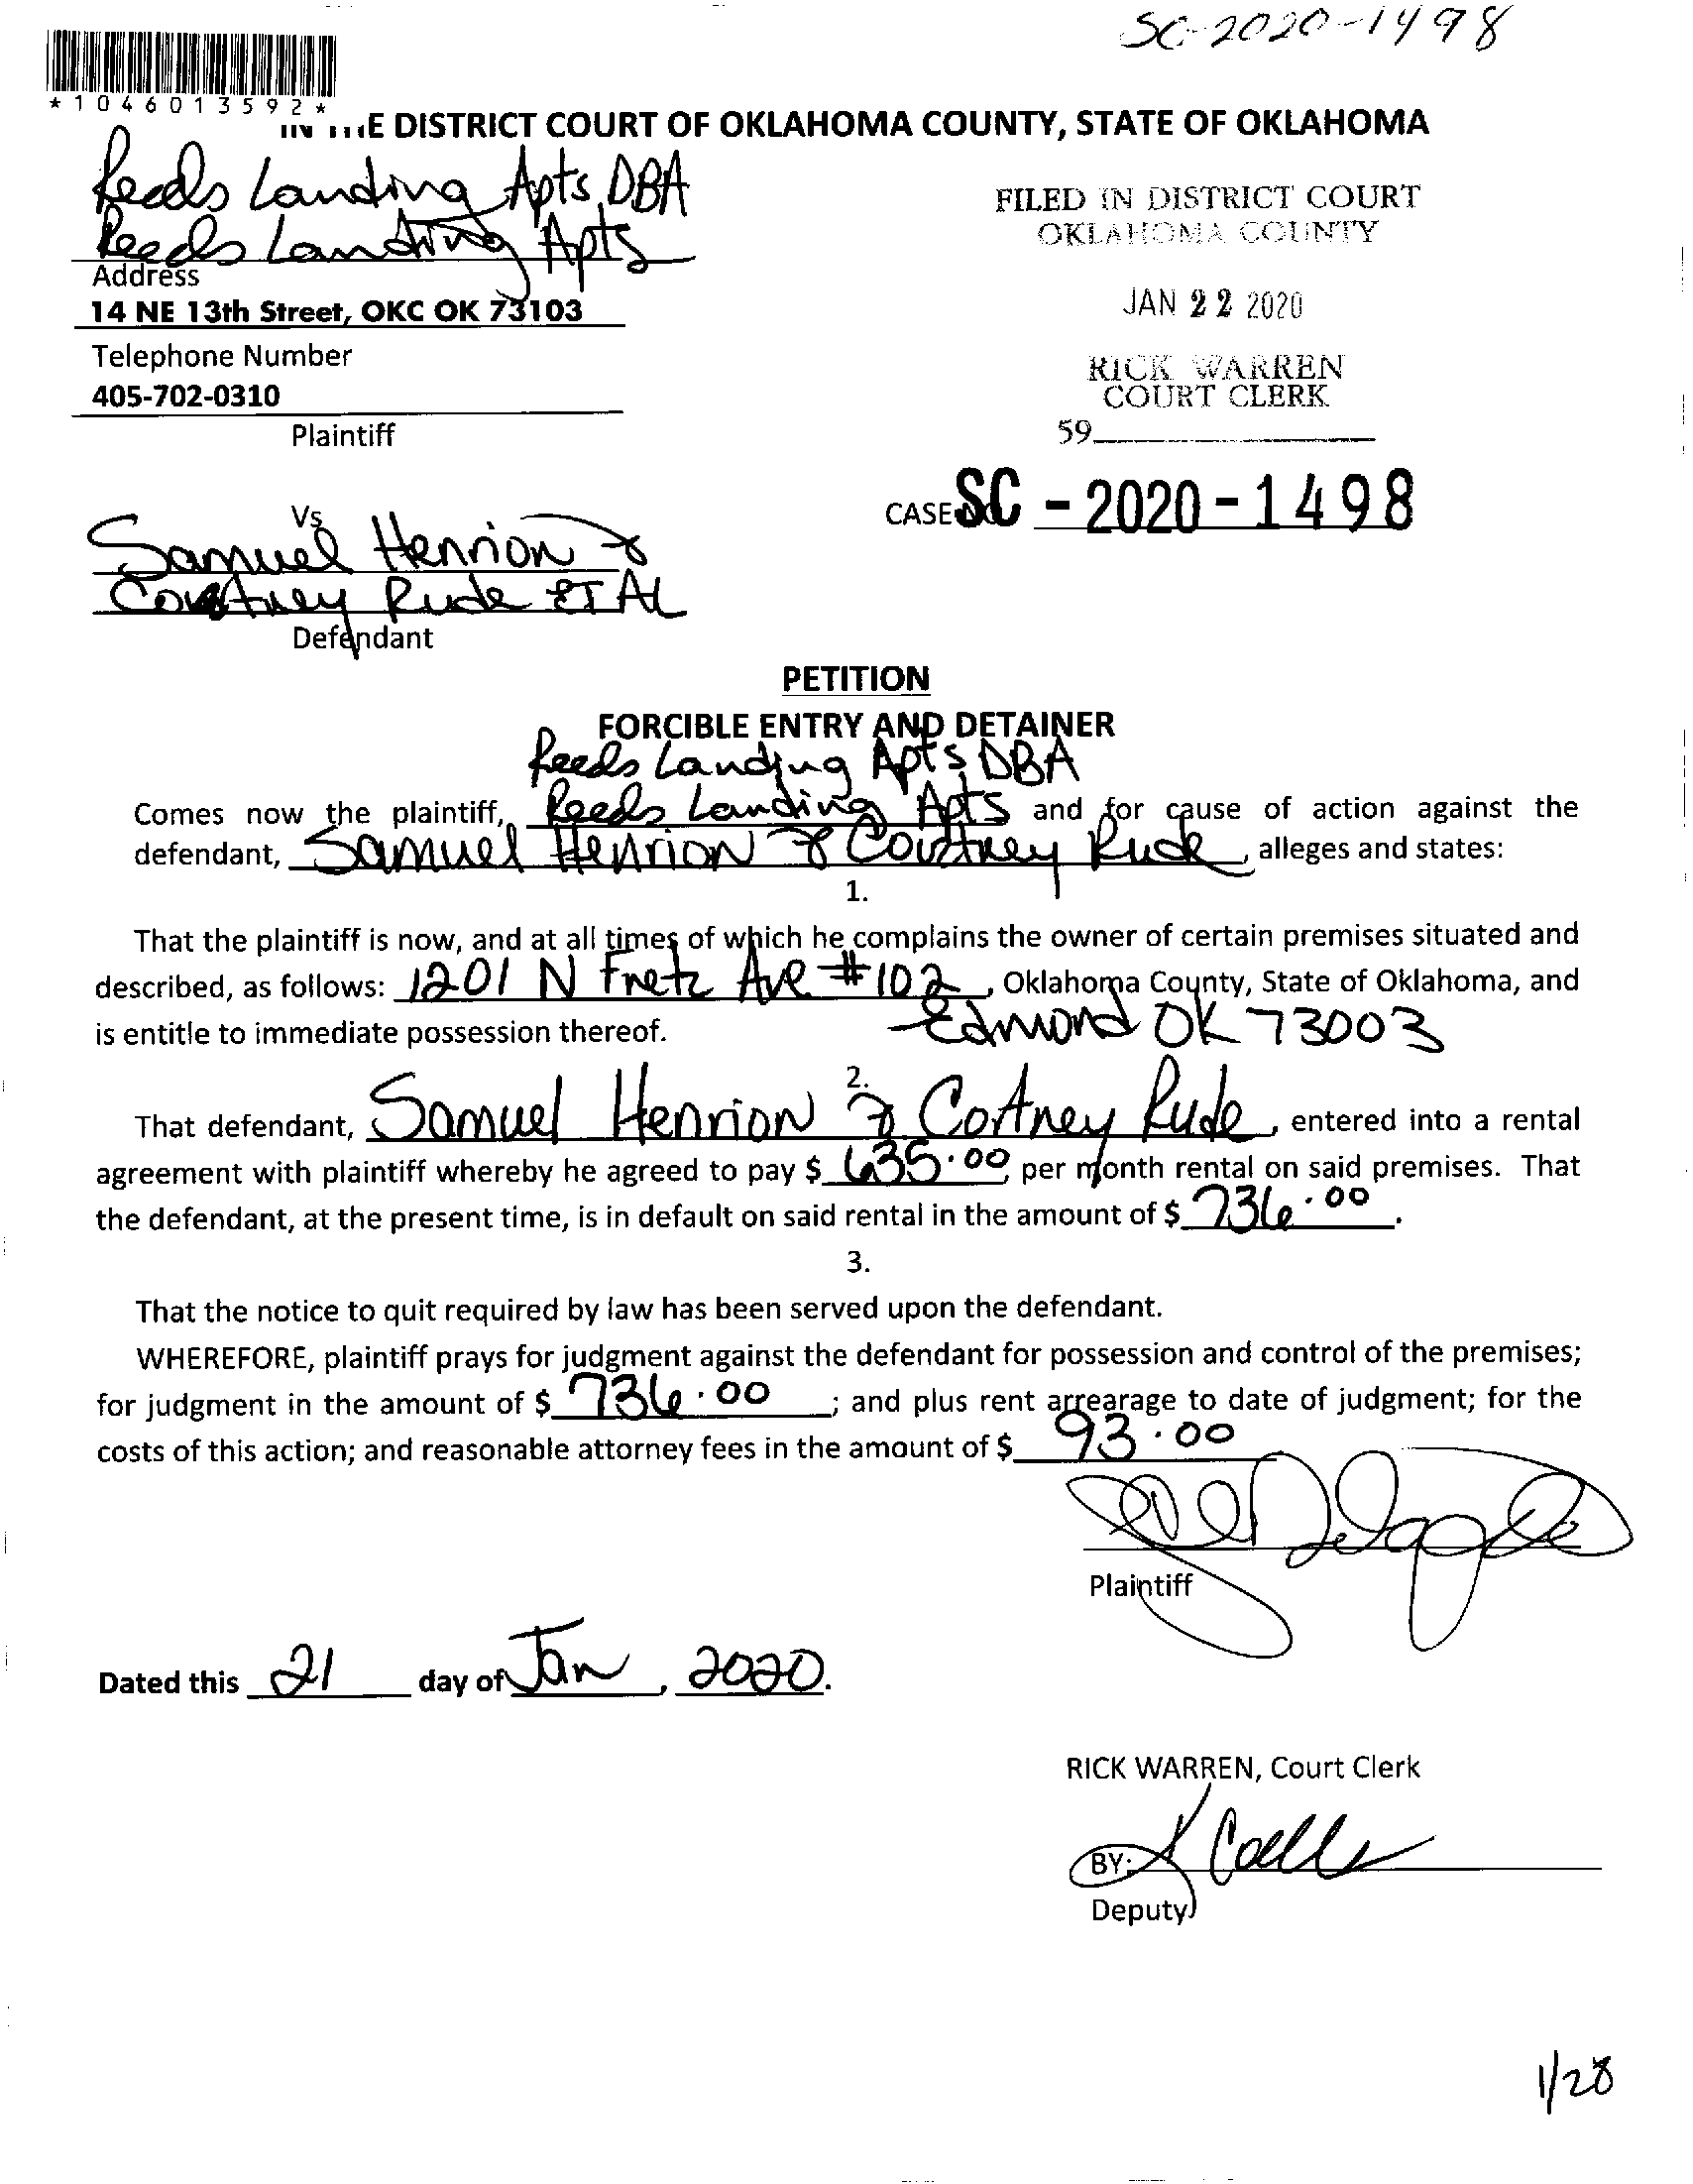 SC-2020-1498
*1046013592*
IN THE DISTRICT COURT OF OKLAHOMA COUNTY, STATE OF OKLAHOMA
Reeds Landing Apts, DBA
Reeds Landing Apts
Address
14 NE 13th Street, OKC OK 73103
Telephone Number
405-702-0310
Plaintiff
FILED IN DISTRICT COURT
OKLAHOMA COUNTY
JAN 22 2020
RICK WARREN
COURT CLERK
59
CASE SC - 2020 - 1498
Vs
Samuel Henrion &
Courtney Rude ET AL
Defendant
PETITION
FORCIBLE ENTRY AND DETAINER
Reeds Landing Apts, DBA
Comes now the plaintiff, Reeds Landing Apts and for cause of action against the
defendant, Samuel Henrion & Courtney Rude, alleges and states:
1.
That the plaintiff is now, and at all times of which he complains the owner of certain premises situated and
described, as follows: 1201 N Fretz Ave #102, Oklahoma County, State of Oklahoma, and
is entitle to immediate possession thereof. Edmond OK 73003
2.
That defendant, Samuel Henrion & Cortney Rude, entered into a rental
agreement with plaintiff whereby he agreed to pay $ 635.00 per month rental on said premises. That
the defendant, at the present time, is in default on said rental in the amount of $ 736.00.
3.
That the notice to quit required by law has been served upon the defendant.
WHEREFORE, plaintiff prays for judgment against the defendant for possession and control of the premises;
for judgment in the amount of $ 736.00; and plus rent arrearage to date of judgment; for the
costs of this action; and reasonable attorney fees in the amount of $ 93.00
Plaintiff
Dated this 21 day of Jan, 2020.
RICK WARREN, Court Clerk
BY:
Deputy
1/28